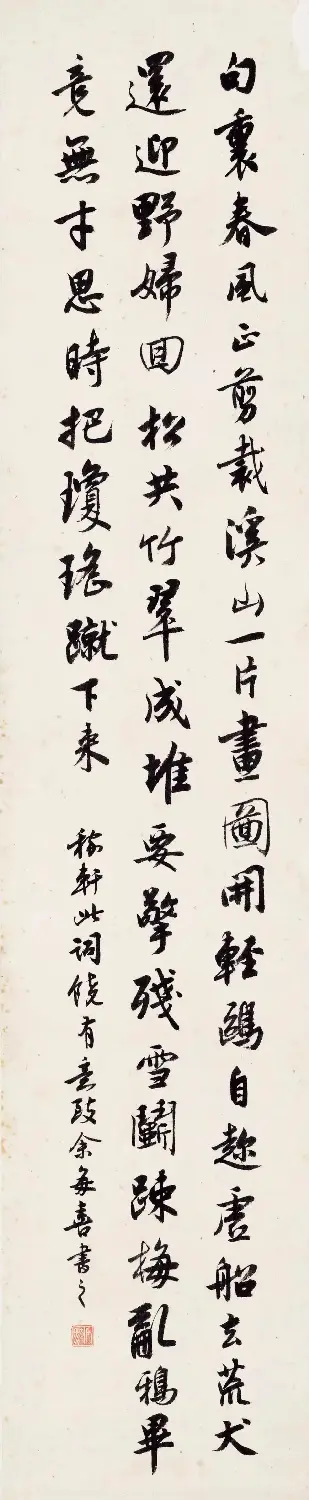 句裏春風正剪裁溪山一片畫圖開輕鷗自趁虛船去荒犬
還迎野婦回松共竹翠成堆要擎殘雪鬭踈梅亂鴉畢
竟無才思時把瓊瑤蹴下来
稼軒此詞饒有意致余每喜書之